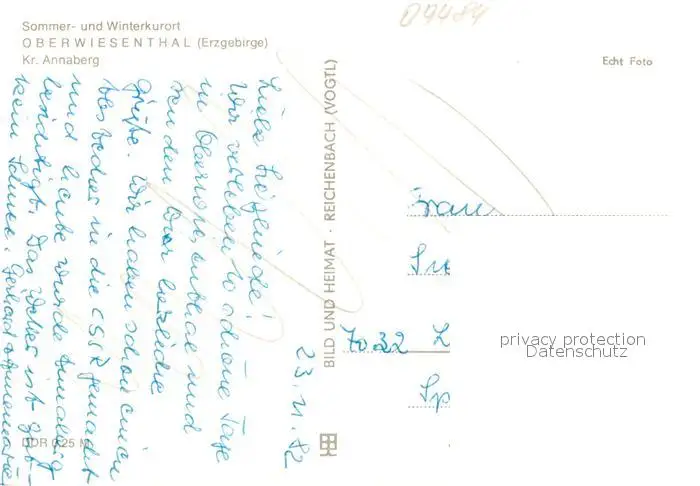 09484
Sommer- und Winterkurort
OBERWIESENTHAL (Erzgebirge)
Kr. Annaberg
Echt Foto
23.11.82
Liebe
Wir verleben 10 schöne Tage
in Oberwiesenthal und
senden Dir herzliche
Grüße. Wir haben schon einen
in die CSSR gemacht
und heute wurde
. Das Wetter ist gut
kein Schnee. Gerhard
BILD UND HEIMAT · REICHENBACH (VOGTL)
Frau
7032 L
Sp
privacy protection
Datenschutz
DDR 0,25 M